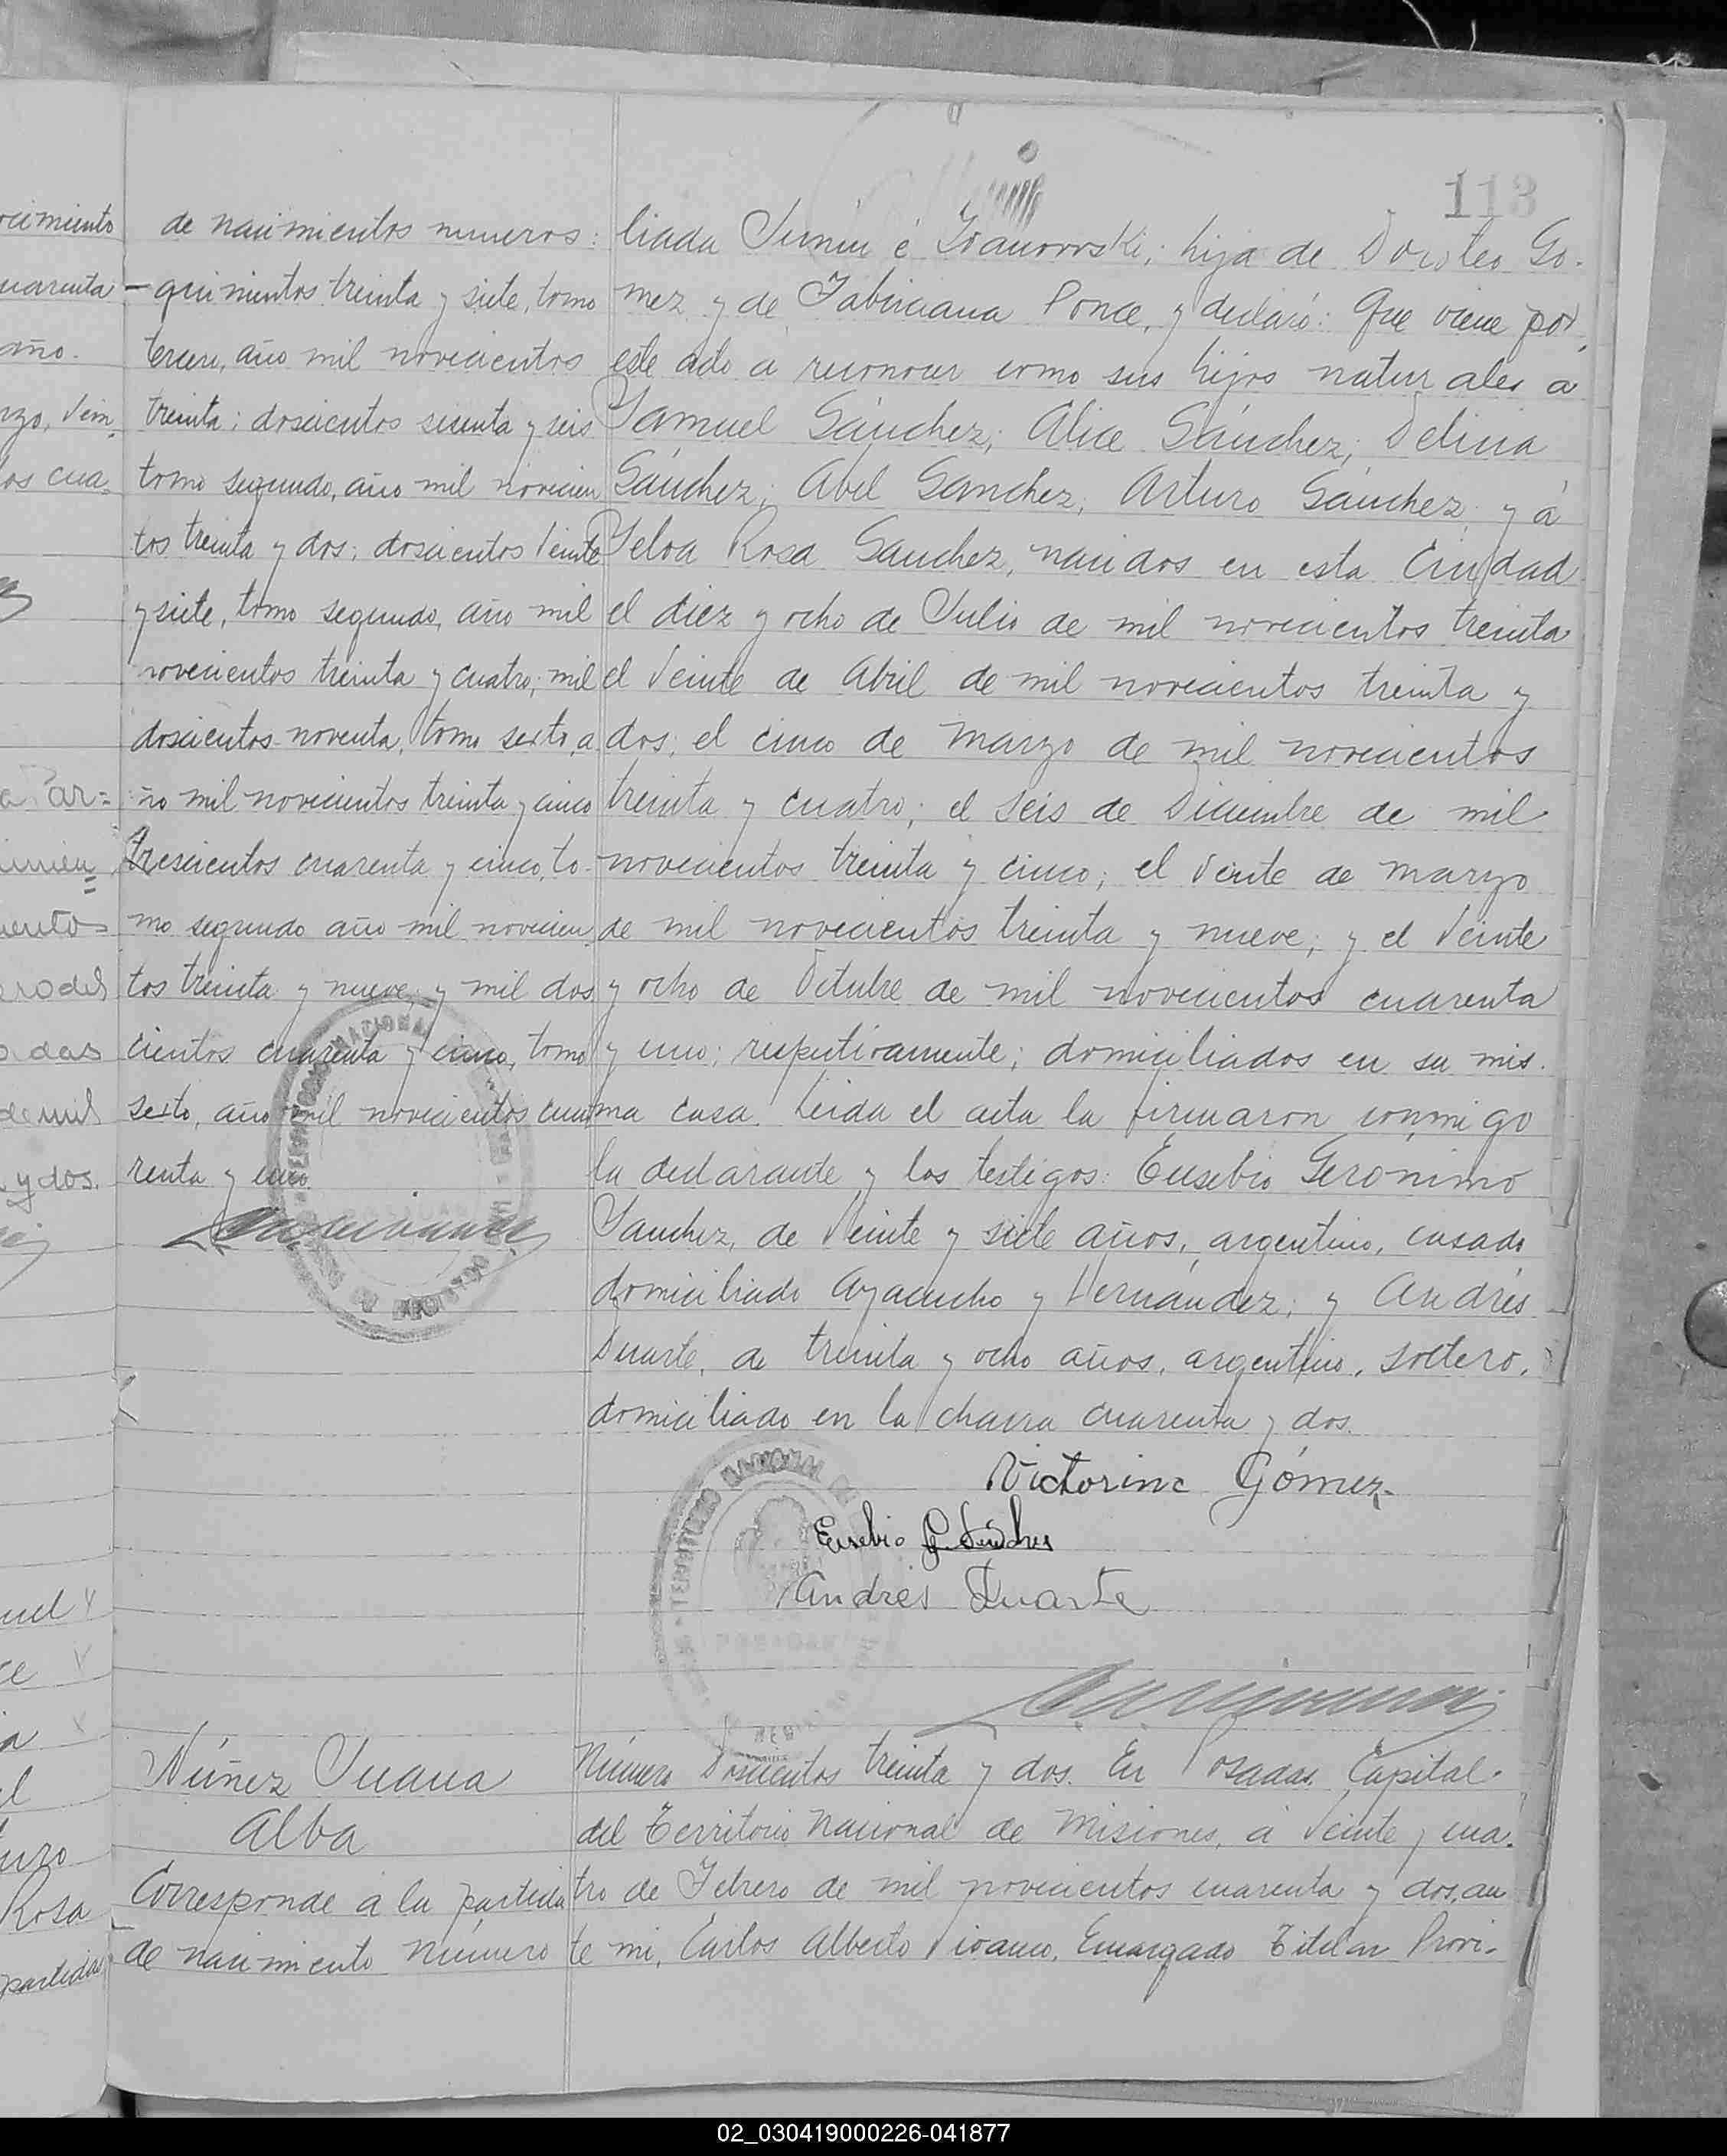 113
de nacimientos numeros:
- quinientos treinta y siete, tomo
tercero, año mil novecientos
treinta; doscientos sesenta y seis
tomo segundo, año mil novecien
tos treinta y dos; doscientos veinte
y siete, tomo segundo, año mil
novecientos treinta y cuatro; mil
doscientos noventa, tomo sexto, a
ño mil novecientos treinta y cinco
trescientos cuarenta y cinco, to-
mo segundo año mil novecien
tos treinta y nueve; y mil dos
cientos cuarenta y cinco, tomo
sexto, año mil novecientos cua
renta y uno.
liada Junin é ; hija de Doroteo Go-
mez y de Fabriciana Ponce, y declaró: Que viene por
este acto a reconocer como sus hijos naturales a
Samuel Sánchez; Alice Sánchez; Delicia
Sánchez; Abel Sanchez; Arturo Sánchez; y á
Selva Rosa Sanchez, nacidos en esta Ciudad
el diez y ocho de Julio de mil novecientos treinta
el veinte de Abril de mil novecientos treinta y
dos; el cinco de Marzo de mil novecientos
treinta y cuatro; el seis de Diciembre de mil
novecientos treinta y cinco; el veinte de marzo
de mil novecientos treinta y nueve; y el veinte
y ocho de Octubre de mil novecientos cuarenta
y uno; respectivamente; domiciliados en su mis-
ma casa. Leida el acta la firmaron conmigo
la declarante y los testigos: Eusebio Geronimo
Sanchez, de veinte y siete años, argentino, casado
domiciliado Ayacucho y Hernández; y Andrés
Duarte, de treinta y ocho años, argentino, soltero,
domiciliado en la chacra cuarenta y dos.
Victorina Gómez
Eusebio G. Sánches
Andrés Duarte
Núñez Juana
Alba
Corresponde a la partida
de nacimiento número
Número Doscientos treinta y dos. En Posadas, Capital
del Territorio Nacional de Misiones, a veinte y cua-
tro de Febrero de mil novecientos cuarenta y dos, an
te mi, Carlos Alberto Vivanco, Encargado Titular Provi-
02_030419000226-041877